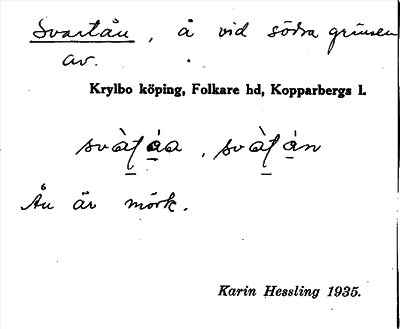 Svartån, å vid södra gränsen
av.
Krylbo köping, Folkare hd, Kopparbergs l.
Ån är mörk.
Karin Hessling 1935.